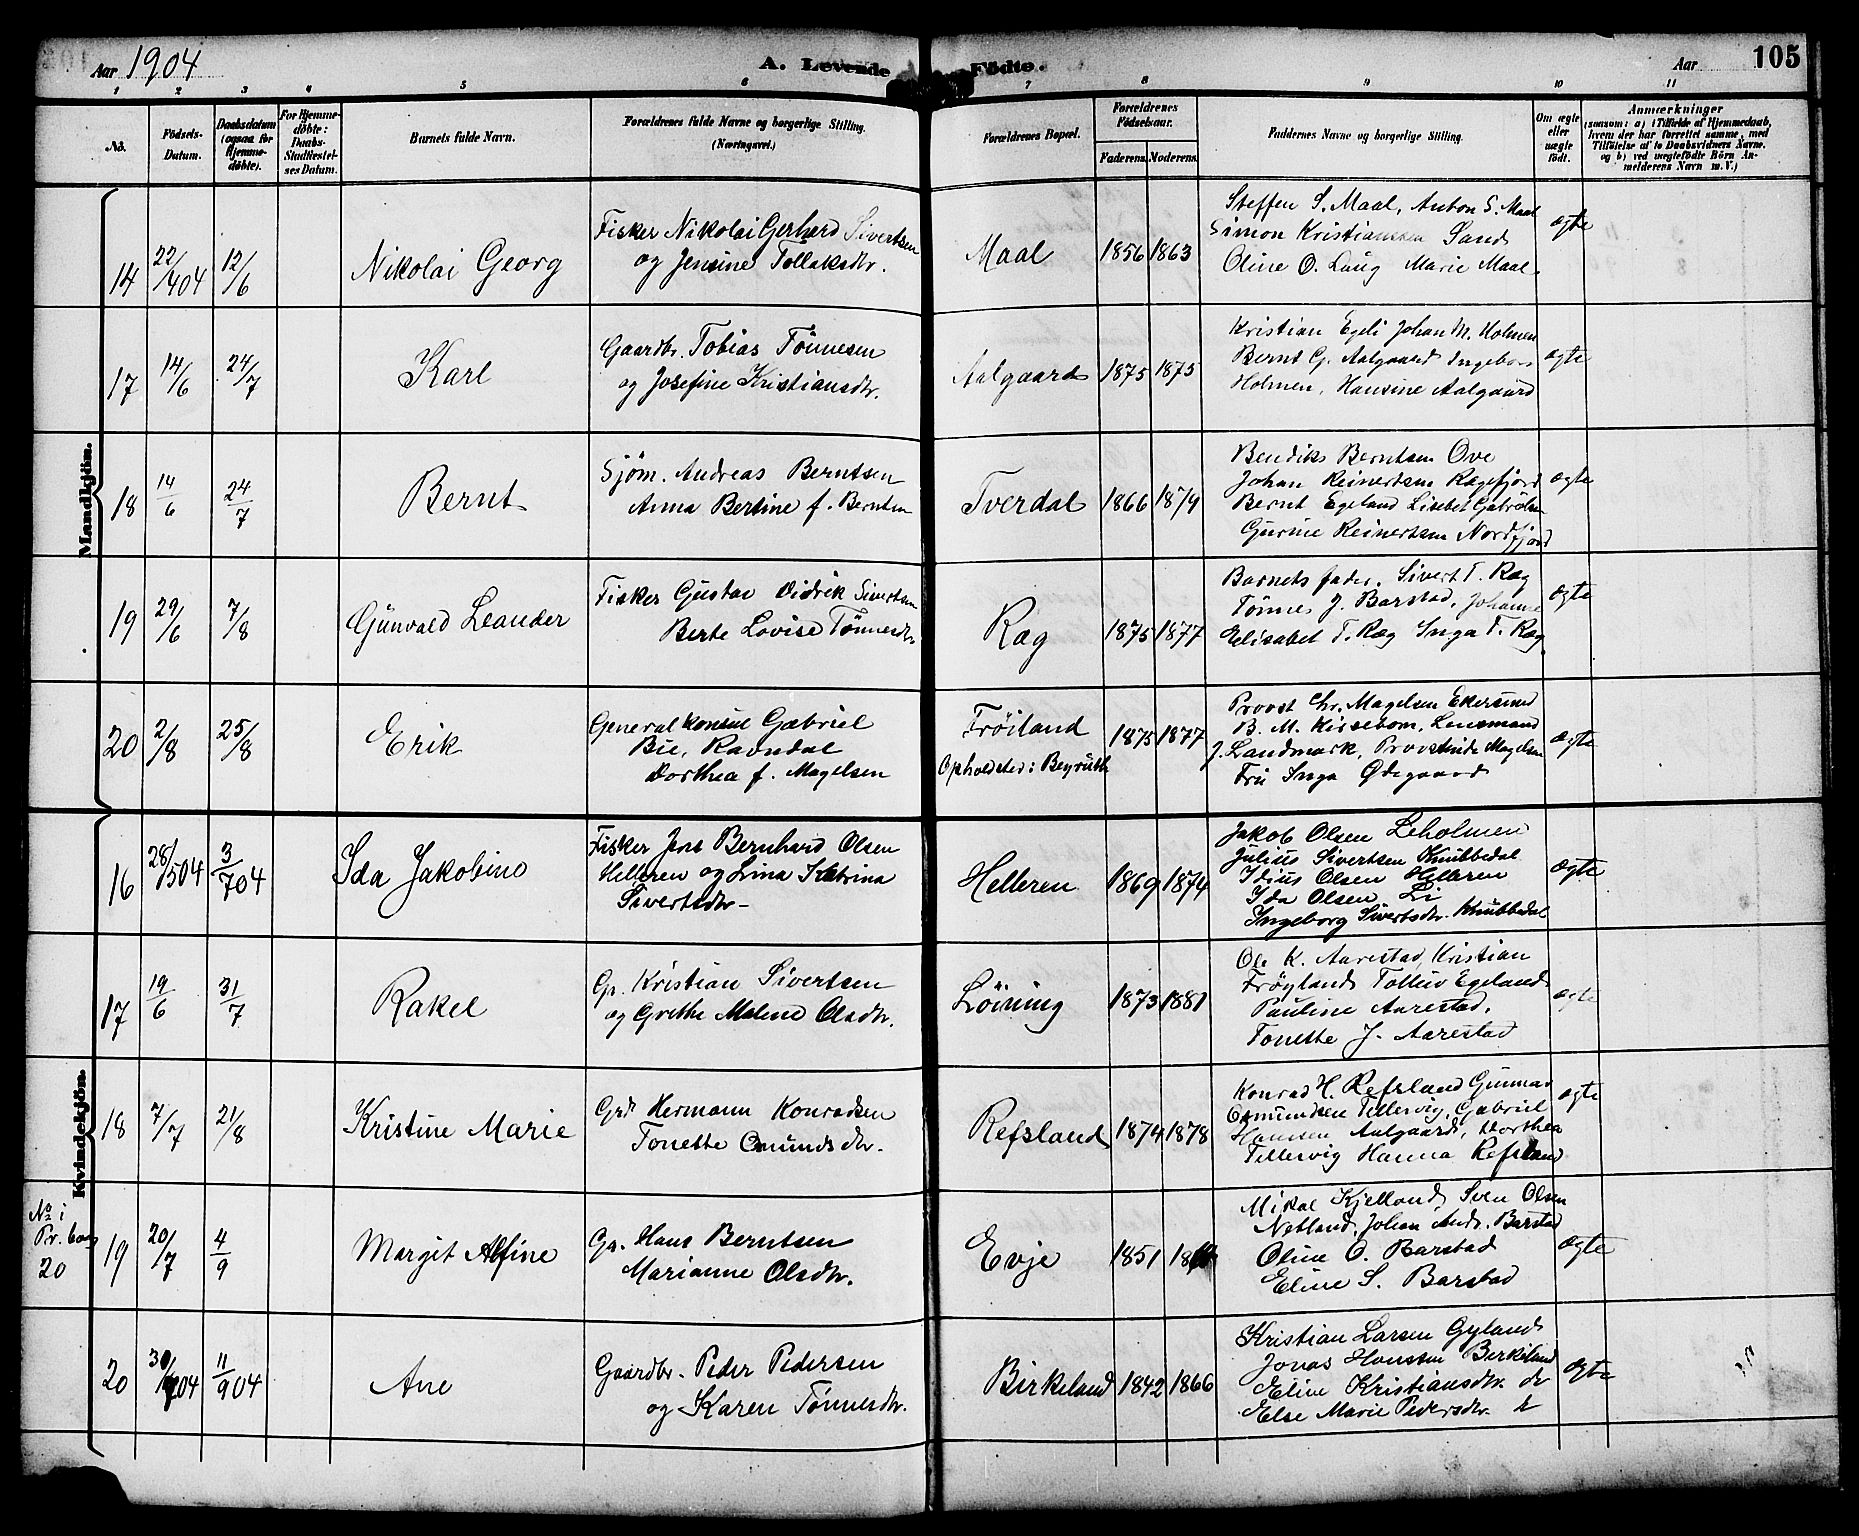 Aar 1904
A. Levende Födte.
Aar
105
1 2 3 4 5 6 7 8 9 10 11
No.
Födsels-Datum.
Daabsdatum (ogsaa for Hjemme-döbte).
For Hjemme-döbte: Daabs-Stadfæstel-ses Datum.
Barnets fulde Navn.
Forældrenes fulde Navne og borgerlige Stilling. (Næringsvei.)
Forældrenes Bopæl.
Forældrenes Födselsaar.
Faderens. Moderens.
Faddernes Navne og borgerlige Stilling.
Om ægte eller uægte födt.
Anmærkninger
(saasom: a) i Tilfælde af Hjemmedaab, hvem der har forrettet samme, med Tilföielse af to Daabsvidners Navne. og b) ved uægtefödte Börn An-melderens Navn m. V.)
Mandkjön.
14 22/404 12/6 Nikolai Georg
Fisker Nikolai Gerhard Sivertsen
og Jensine Tollaksdtr.
Maal 1856 1863
Steffen S. Maal, Anton S. Maal
Simon Kristiansen Sand
Oline O. Laug Marie Maal
ægte
17 14/6 24/7 Karl
Gaardbr. Tobias Tönnesen
og Josefine Kristiansdtr.
Aalgaard 1875 1875
Kristian Egeli Johan M. Holmen
Bernt G. Aalgaard Ingebor
Holmen, Hansine Aalgaard
ægte
18 14/6 24/7 Bernt
Sjöm. Andreas Berntsen
Anna Bertine f. Berntsen
Tverdal 1866 1879
Bendiks Berntsen Ove
Johan Reinertsen Rægefjord
Bernt Egeland Lisebet Gabrielsen
Gurine Reinertsen Nordfjord
ægte
19 29/6 7/8 Gunvald Leander
Fisker Gustav Didrik Sivertsen
Berte Lovise Tönnesdtr.
Ræg 1875 1877
Barnets fader. Sivert T. Ræg
Tönnes J. Barstad, Johanne
Elisabet T. Ræg Inga T. Ræg
ægte
20 2/8 25/8 Erik
General konsul Gabriel
Bie, Ravndal
Dorthea f. Magelsen
Fröiland
Opholdsted: Beyruth
1875 1877
Provst Chr. Magelsen Ekersund
B. M. Kirsebom, Lensmand
J. Landmark, Provstinde Magelsen
Fru Inga Ødegaard
ægte
Kvindekjön.
16 28/504 3/704 Ida Jakobine
Fisker Jens Bernhard Olsen
Helleren og Lina Katrina
Sivertsdtr.
Helleren 1869 1874
Jakob Olsen Leholmen
Julius Sivertsen Knubbedal
Idius Olsen Helleren
Ida Olsen Li
Ingeborg Sivertsdtr. Knubbedal
ægte
17 19/6 31/7 Rakel
Gr. Kristian Sivertsen
og Grethe Malene Olsdtr.
Löining 1873 1881
Ole K. Aarestad, Kristian
Fröyland Tolliv Egeland
Pauline Aarestad,
Tonette J. Aarestad
ægte
18 7/7 21/8 Kristine Marie
Grd. Hermann Konradsen
Tonette Omundsdtr.
Refsland 1874 1878
Konrad H. Refsland Gunnar
Osmundsen Tellersvig, Gabriel
Hansen Aalgaard, Dorthea
Tellersvig Hanna Refsland
ægte
No. i
Pr. bog
20
19 20/7 4/9 Margit Alfine
Gr. Hans Berntsen
Marianne Olsdtr.
Evje 1851
Mikal Kjelland, Sven Olsen
Netland, Johan Andr. Barstad
Oline O. Barstad
Eline S. Barstad
ægte
20 11/904 Ane
Gaardbr. Peder Pedersen
og Karen Tönnesdtr.
Birkeland 1842 1866
Kristian Larsen Gyland
Jonas Hansen Birkeland
Eline Kristiansdtr. do
Else Marie Pedersdtr.
ægte